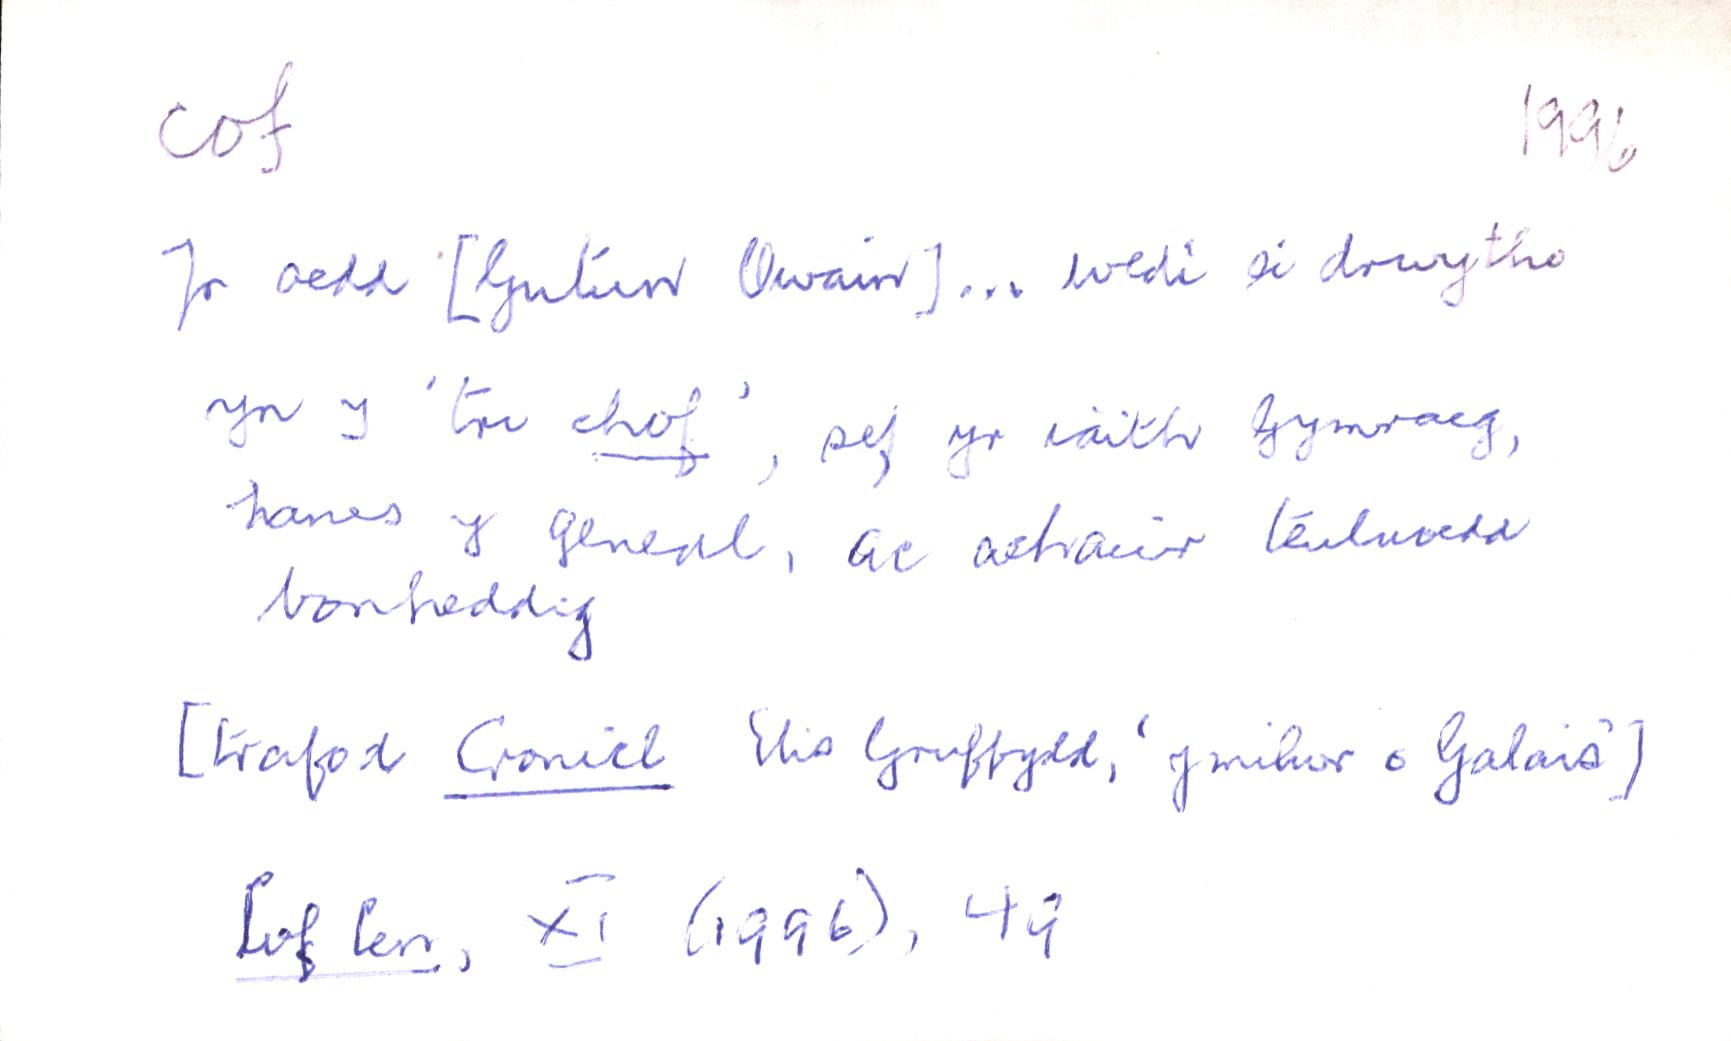 cof 1996
Yr oedd [Gutun Owain]... wedi ei drwytho
yn y 'tri chof', sef yr iaith Gymraeg,
hanes y genedl, ac achau'r teuluoedd
bonheddig
[trafod Cronicl Elis Gruffydd, 'y milwr o Galais']
Cof Cen, XI (1996), 49